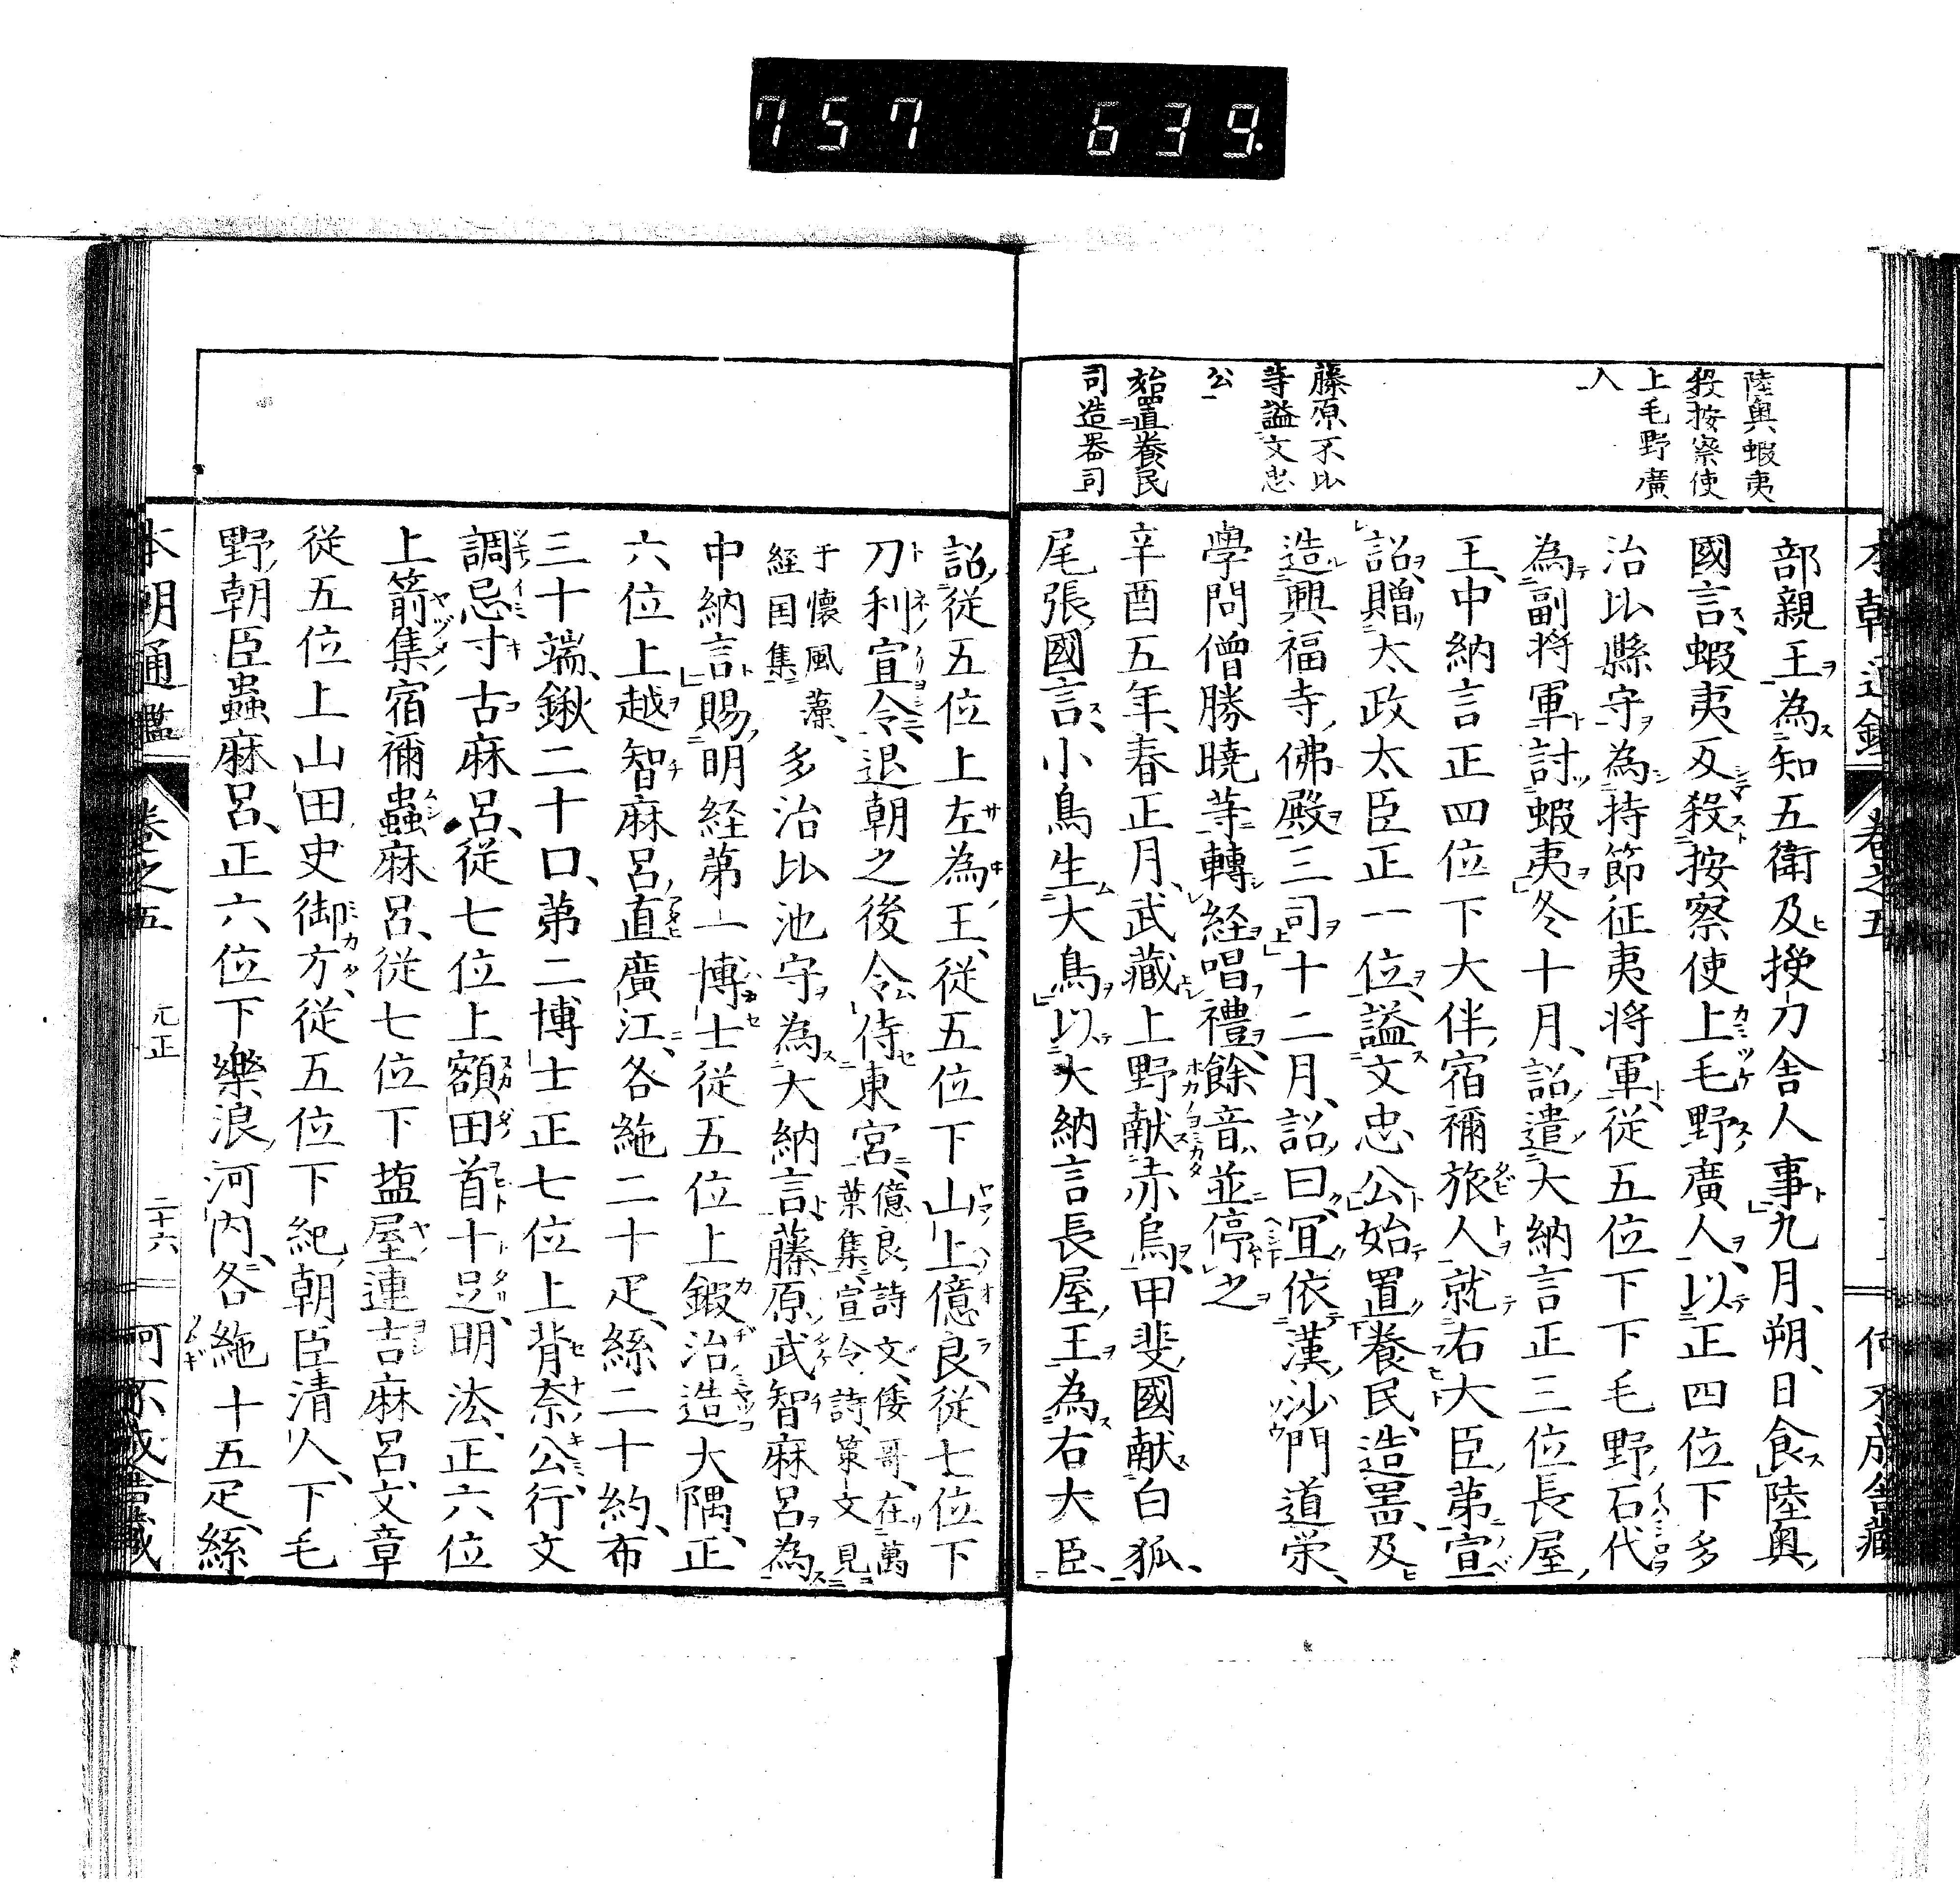 757 639.
陸奥蝦夷
殺按察使
上毛野廣
人
藤原不比
等謚文忠
公
始置養民
司造器司
部親王為知五衛及授刀舎人事九月朔日食陸奥
國言蝦夷反殺按察使上毛野廣人以正四位下多
治比縣守為持節征夷将軍従五位下下毛野石代
為副将軍討蝦夷冬十月詔遣大納言正三位長屋
王中納言正四位下大伴宿禰旅人就右大臣第宣
詔贈太政太臣正一位謚文忠公始置養民造噐及
造興福寺佛殿三司十二月詔曰冝依漢沙門道栄
學問僧勝曉等轉経唱禮餘音並停之
辛酉五年春正月武藏上野献赤烏甲斐國献白狐
尾張國言小鳥生大鳥以大納言長屋王為右大臣
詔従五位上左為王従五位下山上億良従七位下
刀利宣令退朝之後令侍東宮億良詩文倭哥在萬
葉集宣令詩策文見
于懷風藻
経国集
多治比池守為大納言藤原武智麻呂為
中納言賜明経第一博士従五位上鍜治造大隅正
六位上越智麻呂直廣江各絁二十疋絲二十約布
三十端鍬二十口第二博士正七位上背奈公行文
調忌寸古麻呂従七位上額田首十足明法正六位
上箭集宿禰蟲麻呂従七位下塩屋連吉麻呂文章
従五位上山田史御方従五位下紀朝臣清人下毛
野朝臣蟲麻呂正六位下樂浪河内各絁十五疋絲
本朝通鑑 巻之五 元正 二十六